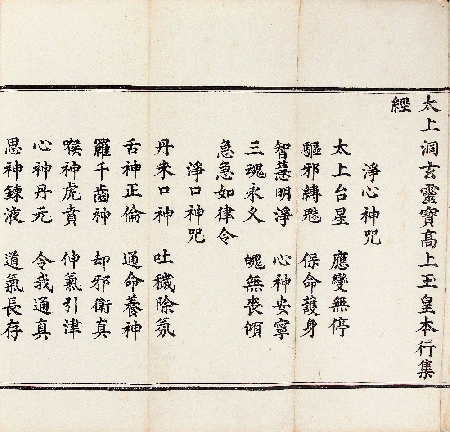 太上洞玄靈寶高上玉皇本行集
經
淨心神咒
太上台星 應變無停
驅邪縛魅 保命護身
智慧明淨 心神安寧
三魂永久 魄無喪傾
急急如律令
淨口神咒
丹朱口神 吐穢除氛
舌神正倫 通命養神
羅千齒神 却邪衛真
喉神虎賁 仲氣引津
心神丹元 令我通真
思神鍊液 道氣長存